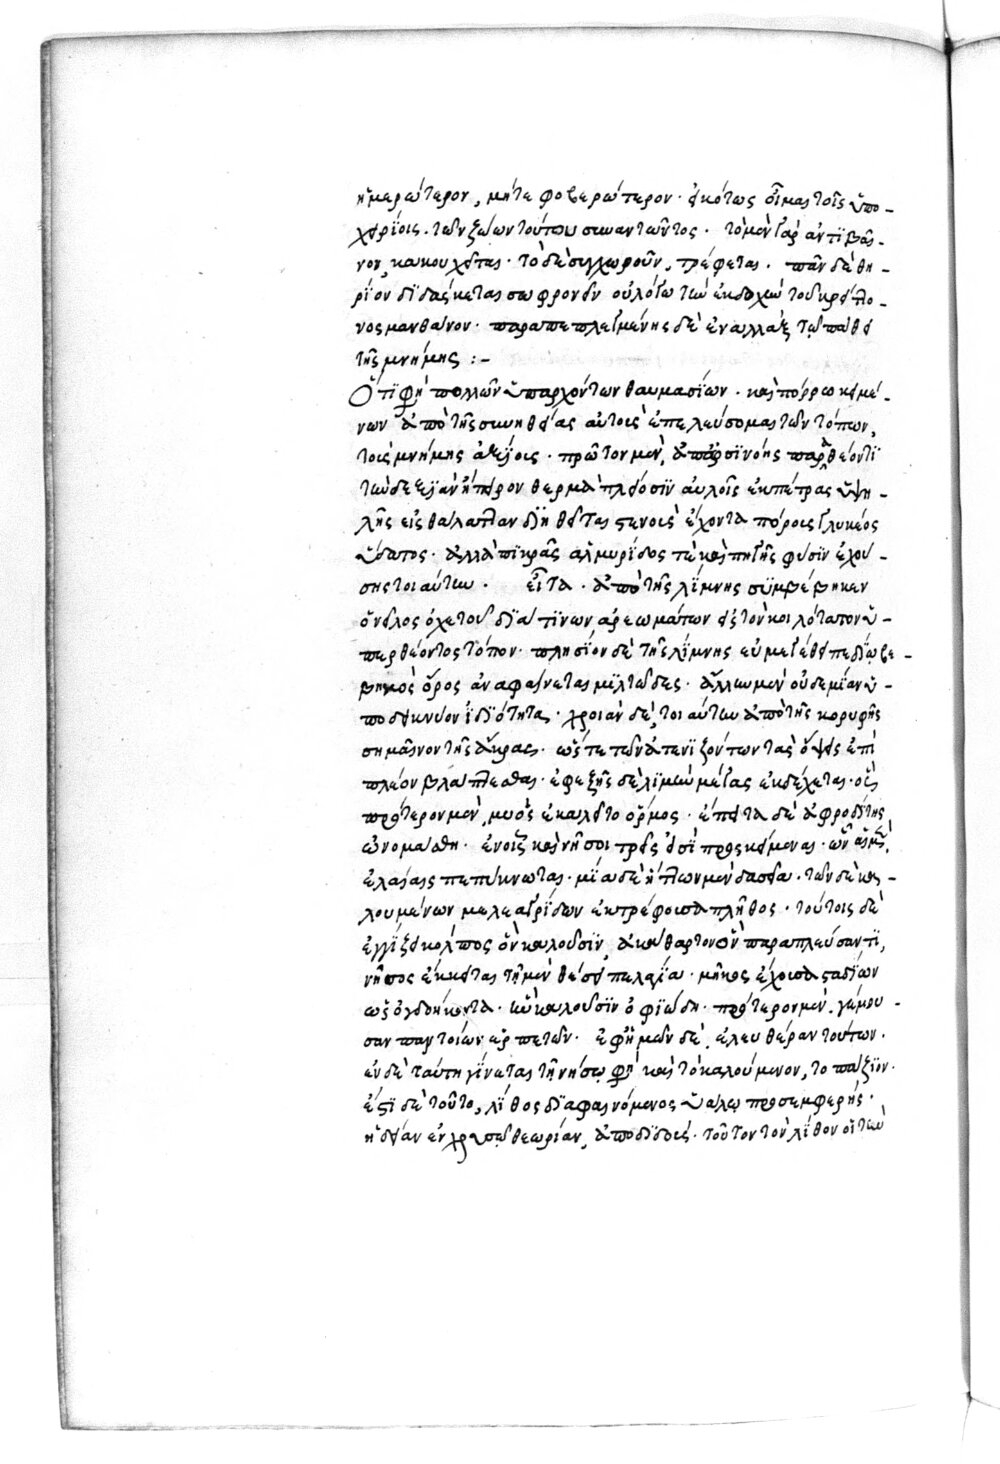 ἡμερώτερον, μήτε φοβερώτερον· εἰκότως οἶμαι τοῖς ὑπο-
χειρίοις τῶν ζώων τούτου συναντῶντος· τὸ μὲν γὰρ ἀντιβαῖ-
νον, κακουχεῖται· τὸ δὲ συγχωροῦν, τρέφεται· πᾶν δὲ θη-
ρίον διδάσκεται σωφρονεῖν οὐ λόγω τὴν ἐκδοχὴν τοῦ κρείττο-
νος μανθάνον· παραπεπλεγμένης δὲ ἐναλλὰξ τῷ πάθει
τῆς μνήμης :-
Ὅτι φησὶ πολλῶν ὑπαρχόντων θαυμασίων· καὶ πόρρω κειμέ-
νων ἀπὸ τῆς συνηθείας αὐτοῖς ἐπελεύσομαι τῶν τόπων,
τοῖς μνήμης ἀξίοις· πρῶτον μὲν, ἀπὸ ἀρσινόης παραθέοντι
τὴν δεξιὰν ἤπειρον θερμὰ πλείοσιν αὐλοῖς ἐκ πέτρας ὑψη-
λῆς εἰς θάλατταν διηθεῖται στενοῖς ἔχοντα πόροις γλυκέος
ὕδατος· ἀλλὰ πικρᾶς ἁλμυρίδος τε καὶ πηγῆς φύσιν ἐχού
σης τοιαύτην· εἶτα· ἀπὸ τῆς λίμνης συμβέβηκεν
ὁ νεῖλος ὀχετοῦ διά τινων ἀρεωμάτων εἰς τὸν κοιλότατον ὑ-
περθέοντος τόπον· πλησίον δὲ τῆς λίμνης εὐμεγέθει πεδίῳ βε-
βηκὸς ὄρος ἀναφαίνεται μιλτῶδες· ἄλλην μὲν οὐδεμίαν ὑ-
ποδεικνύον ἰδιότητα, χροιὰν δὲ, τοιαύτην ἀπὸ τῆς κορυφῆς
σημαῖνον τῆς ἄκρας· ὥστε τῶν ἀτενιζόντων τὰς ὄψεις ἐπὶ
πλέον βλάπτεσθαι· ἐφεξῆς δὲ λιμὴν μέγας ἐκδέχεται· ὃς
πρότερον μὲν, μυὸς ἐκαλεῖτο ὅρμος· ἔπειτα δὲ ἀφροδίτης
ὠνομάσθη· ἐν ᾧ καὶ νῆσοι τρεῖς εἰσὶ προσκείμεναι· ὧν αἱ μὲν,
ἐλαίαις πεπύκνωται· μία δὲ ἧττον μὲν δασεῖα· τῶν δὲ κα-
λουμένων μελεαγρίδων ἐκτρέφουσα πλῆθος· τούτοις δὲ
ἐγγίζει κόλπος ὃν καλοῦσιν, ἀκάθαρτον ὃν παραπλεύσαντι,
νῆσος ἔκκειται τῇ μὲν θέσει πελαγία· μῆκος ἔχουσα σταδίων
ὡς ὀγδοήκοντα· ἣν καλοῦσιν ὀφιώδη· πρότερον μὲν, γέμου-
σαν παντοίων ἑρπετῶν· ἐφ' ἡμῶν δὲ, ἐλευθέραν τούτων.
ἐν δὲ ταύτῃ γίνεται τῇ νήσῳ φησὶ καὶ τὸ καλούμενον, τοπάζιον·
ἐστὶ δὲ τοῦτο, λίθος διαφαινόμενος ὑάλῳ προσεμφερὴς·
ἡδεῖαν ἐν χρυσῷ θεωρίαν, ἀποδιδούς· τοῦτον τὸν λίθον οἱ τὴν